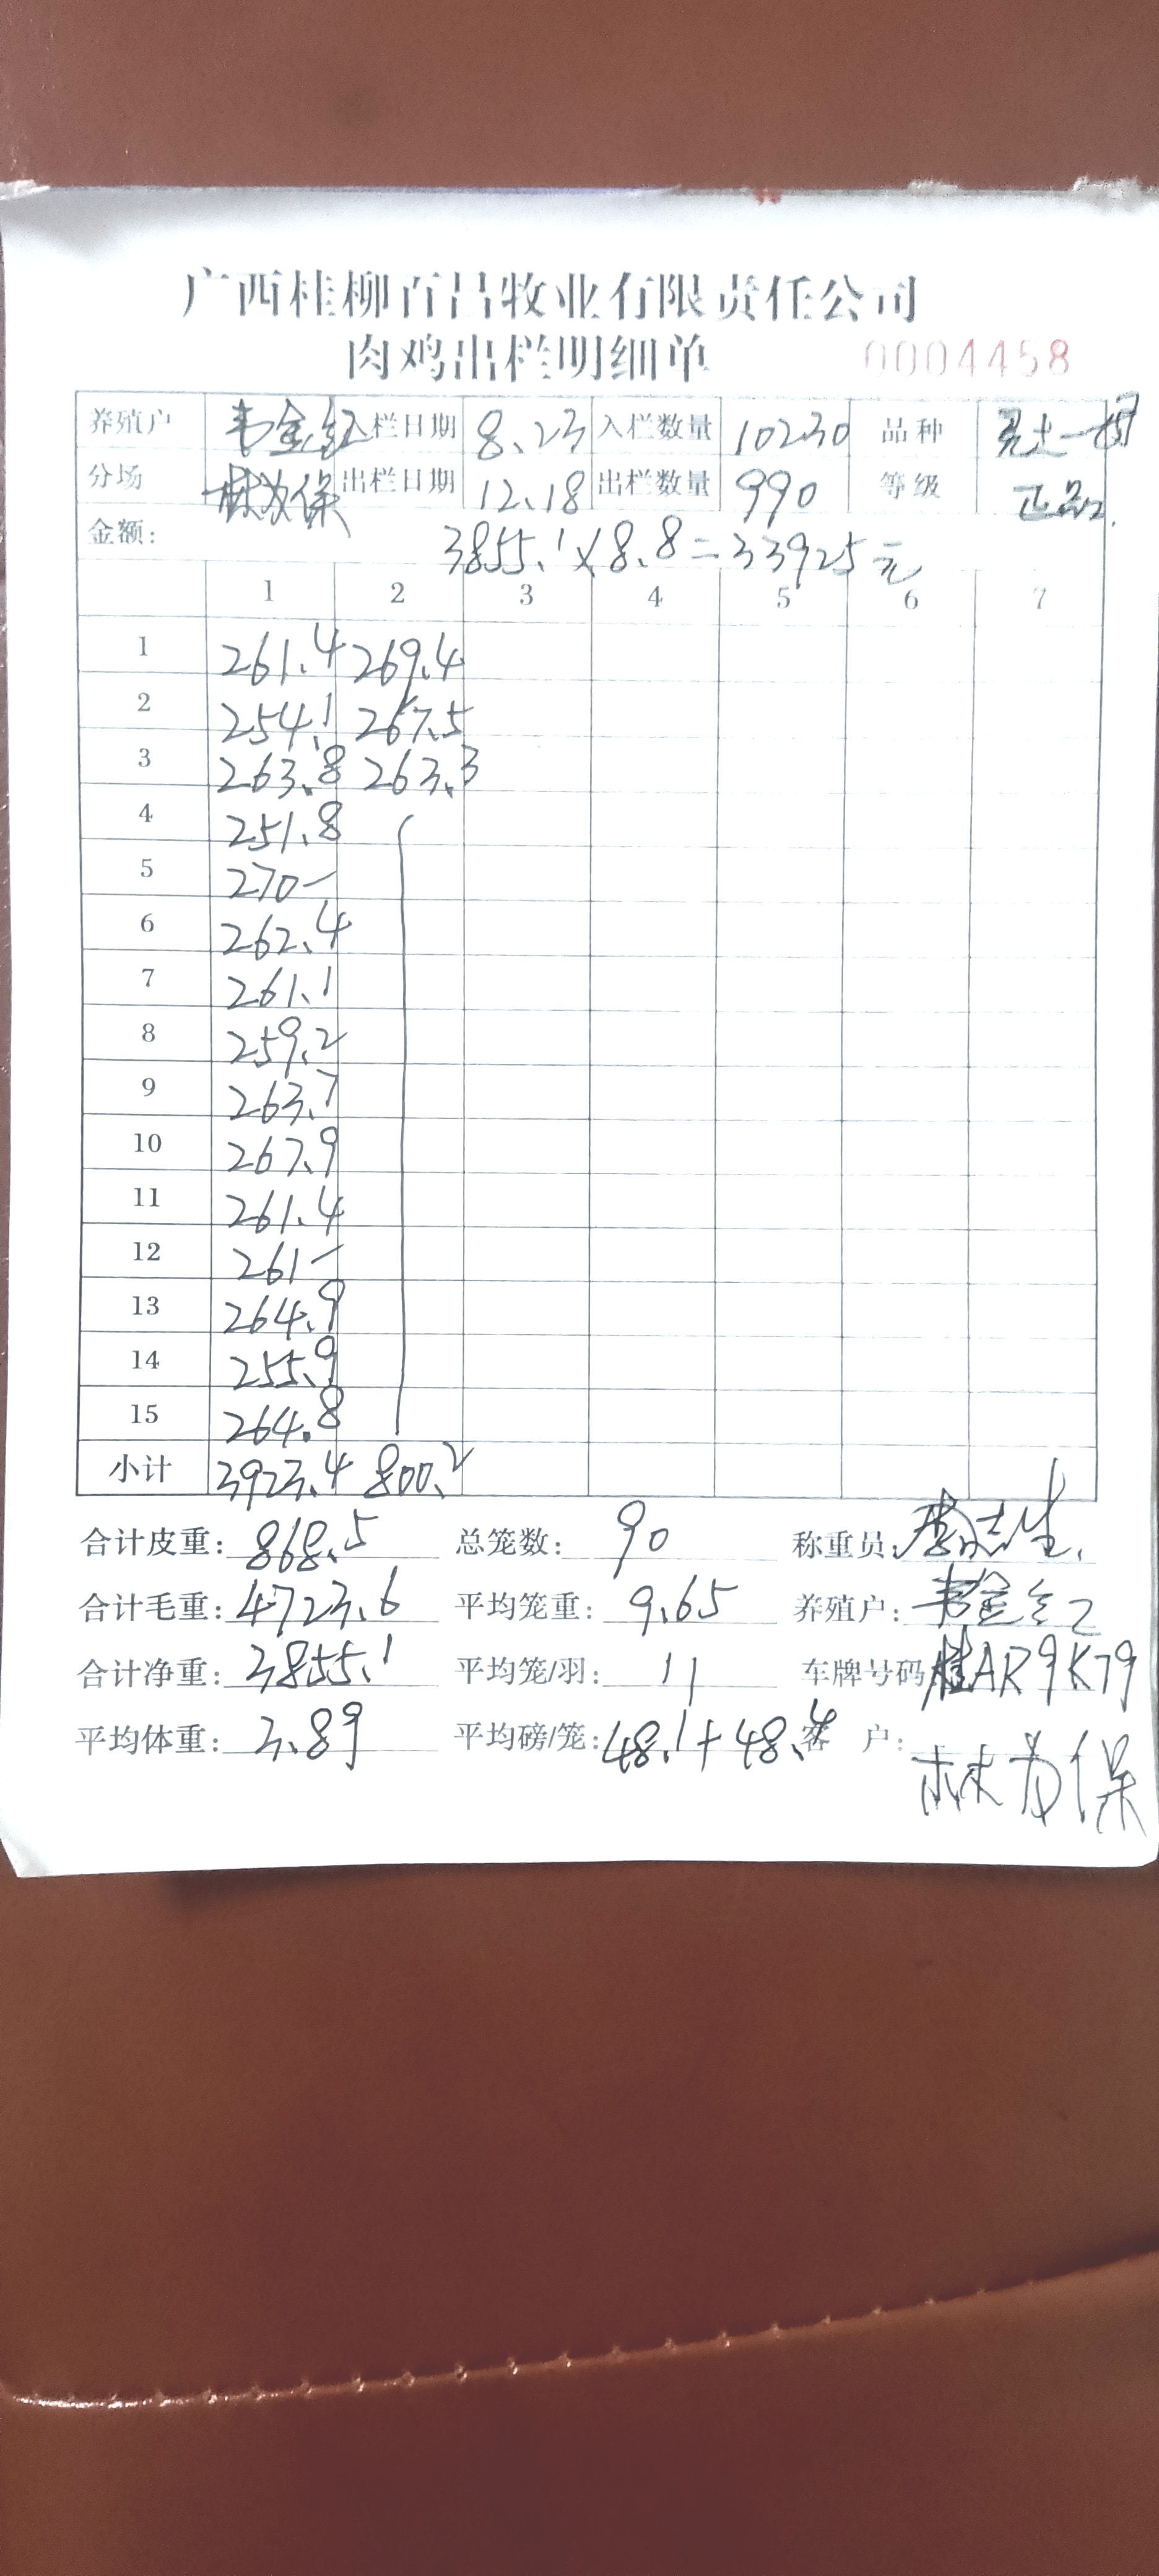 广西桂柳百昌牧业有限责任公司
肉鸡出栏明细单 0004458
养殖户 韦金红 入栏日期 8.23 入栏数量 10230 品种
分场 林为保 出栏日期 12.18 出栏数量 990 等级 正品
金额: 3855.1×8.8=33925元
1 2 3 4 5 6 7
1 261.4 269.4
2 254.1 267.5
3 263.8 263.3
4 251.8
5 270-
6 262.4
7 261.1
8 259.2
9 263.7
10 267.9
11 261.4
12 261-
13 264.9
14 255.9
15 264.8
小计 3923.4 800.2
合计皮重: 868.5 总笼数: 90 称重员: 李志生
合计毛重: 4723.6 平均笼重: 9.65 养殖户: 韦金红
合计净重: 3855.1 平均笼/羽: 11 车牌号码: 桂AR9K79
平均体重: 3.89 平均磅/笼: 48.1+48.4 客 户: 林为保